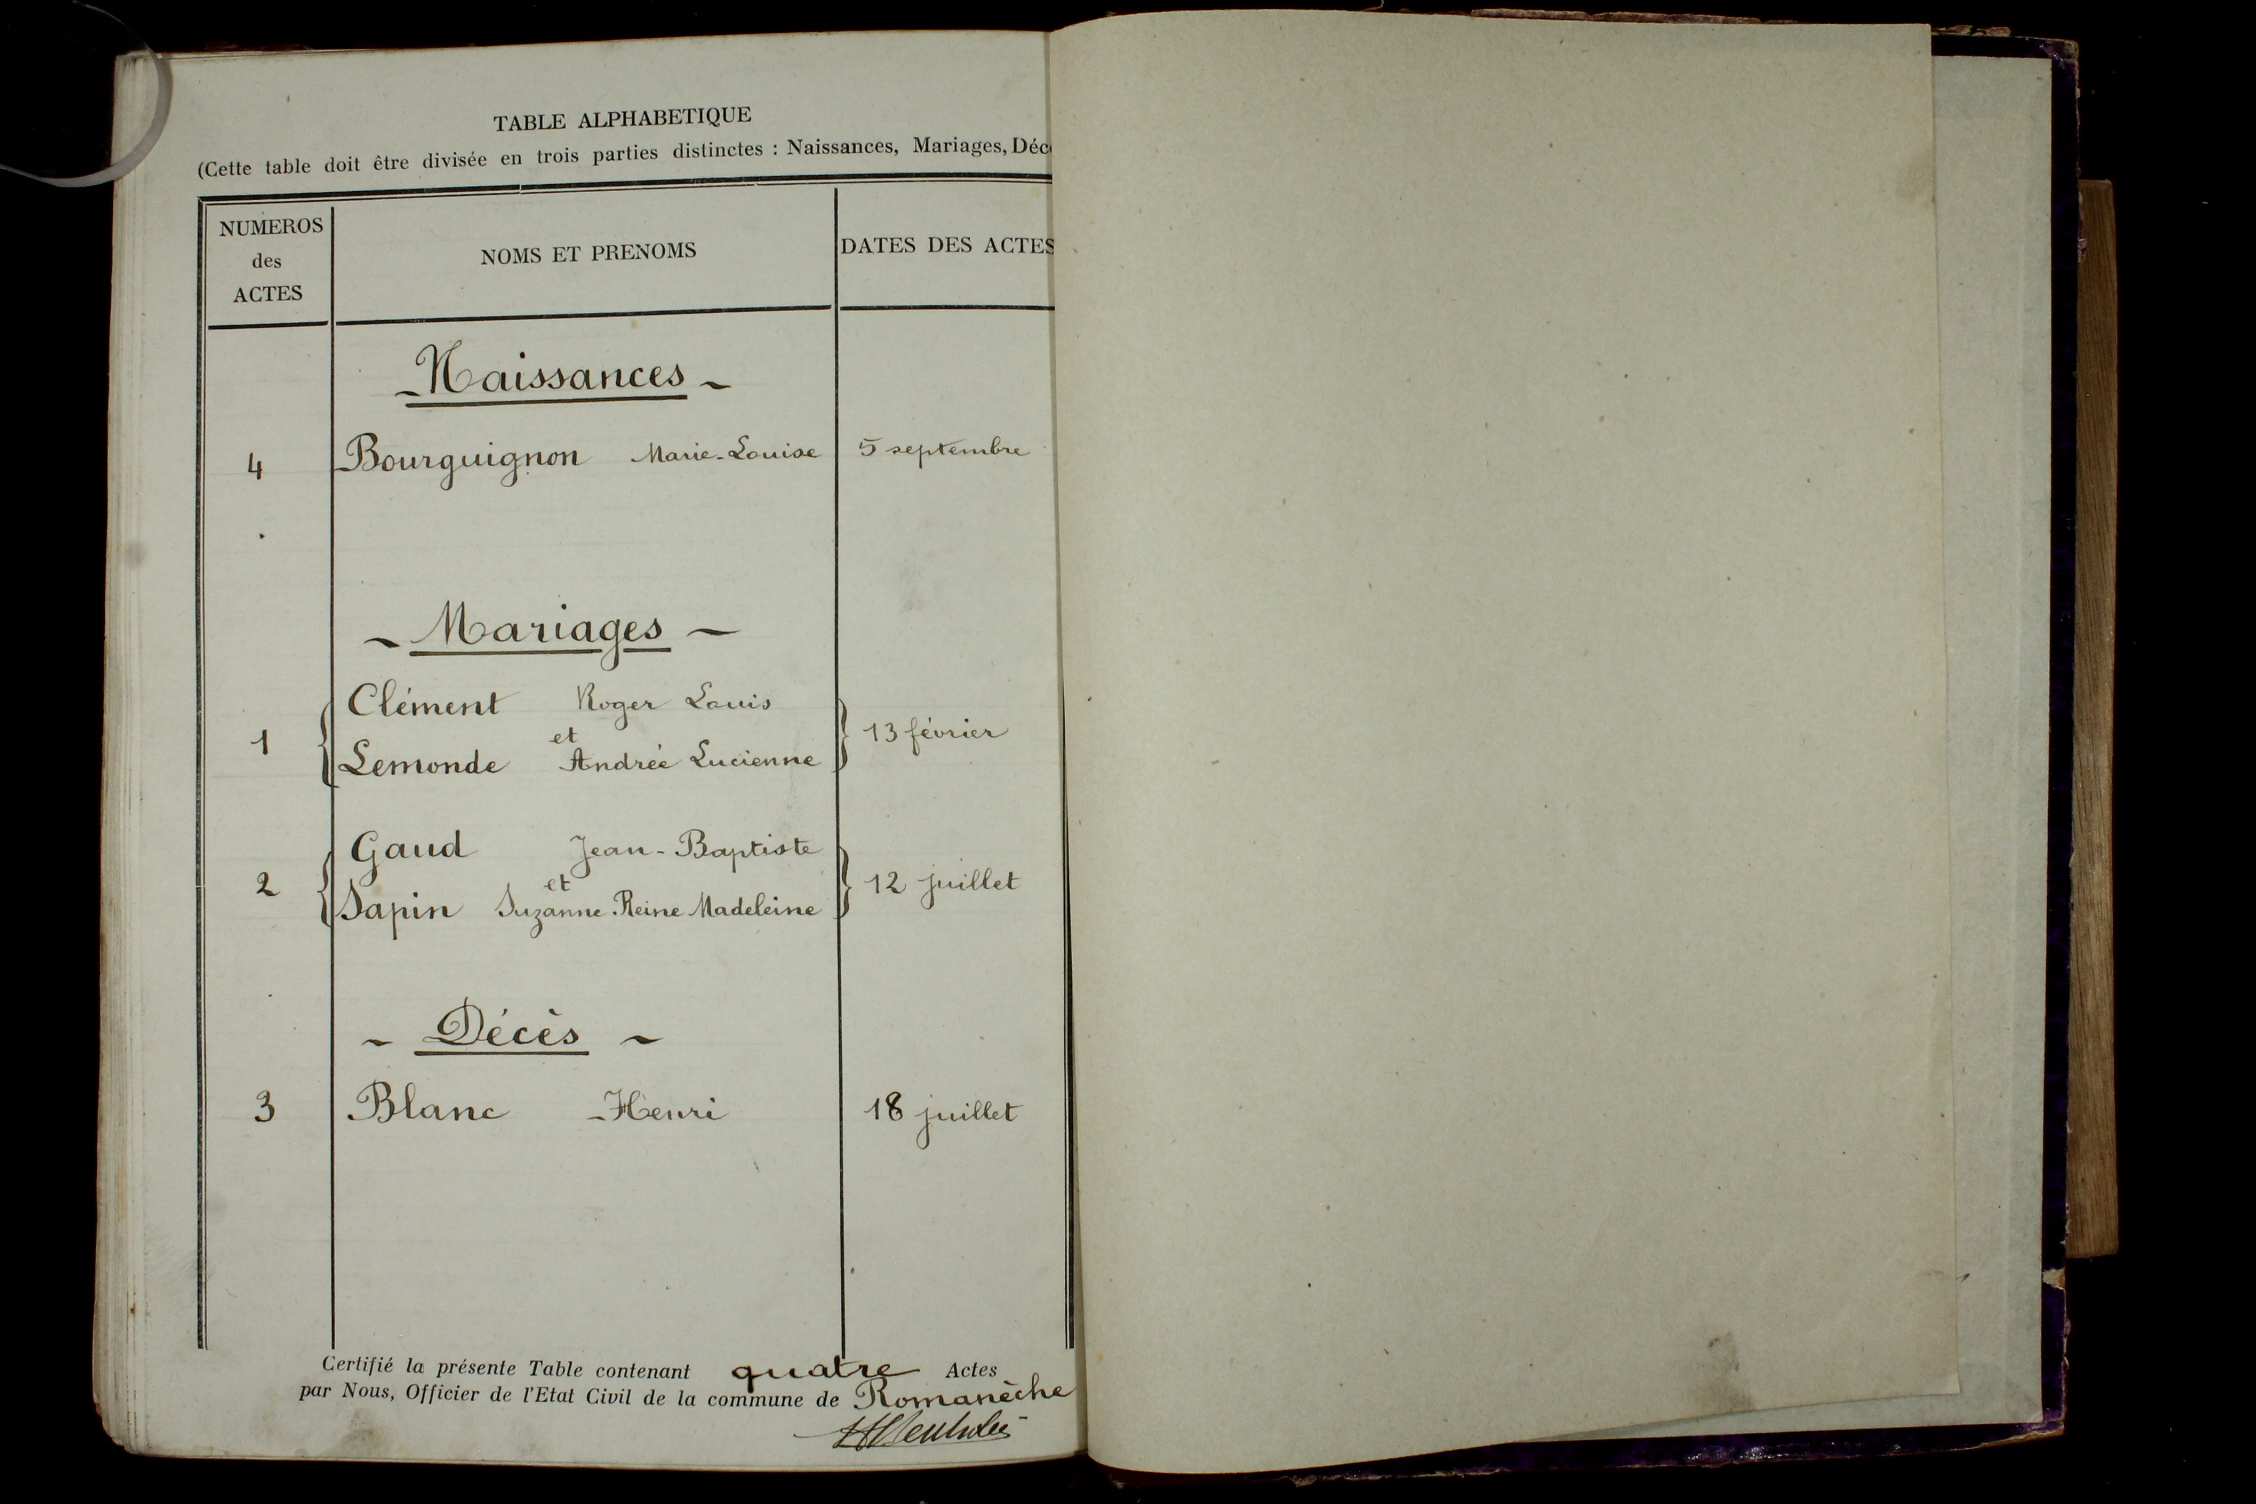 TABLE ALPHABETIQUE
(Cette table doit être divisée en trois parties distinctes : Naissances, Mariages, Déc
NUMEROS
des
ACTES
NOMS ET PRENOMS
DATES DES ACTES
- Naissances -
4 Bourguignon Marie-Louise 5 septembre
- Mariages -
Clément Roger Louis
1 et 13 février
Lemonde Andrée Lucienne
Gaud Jean-Baptiste
2 et 12 juillet
Sapin Suzanne Reine Madeleine
- Décès -
3 Blanc Henri 18 juillet
Certifié la présente Table contenant quatre Actes
par Nous, Officier de l'Etat Civil de la commune de Romanèche